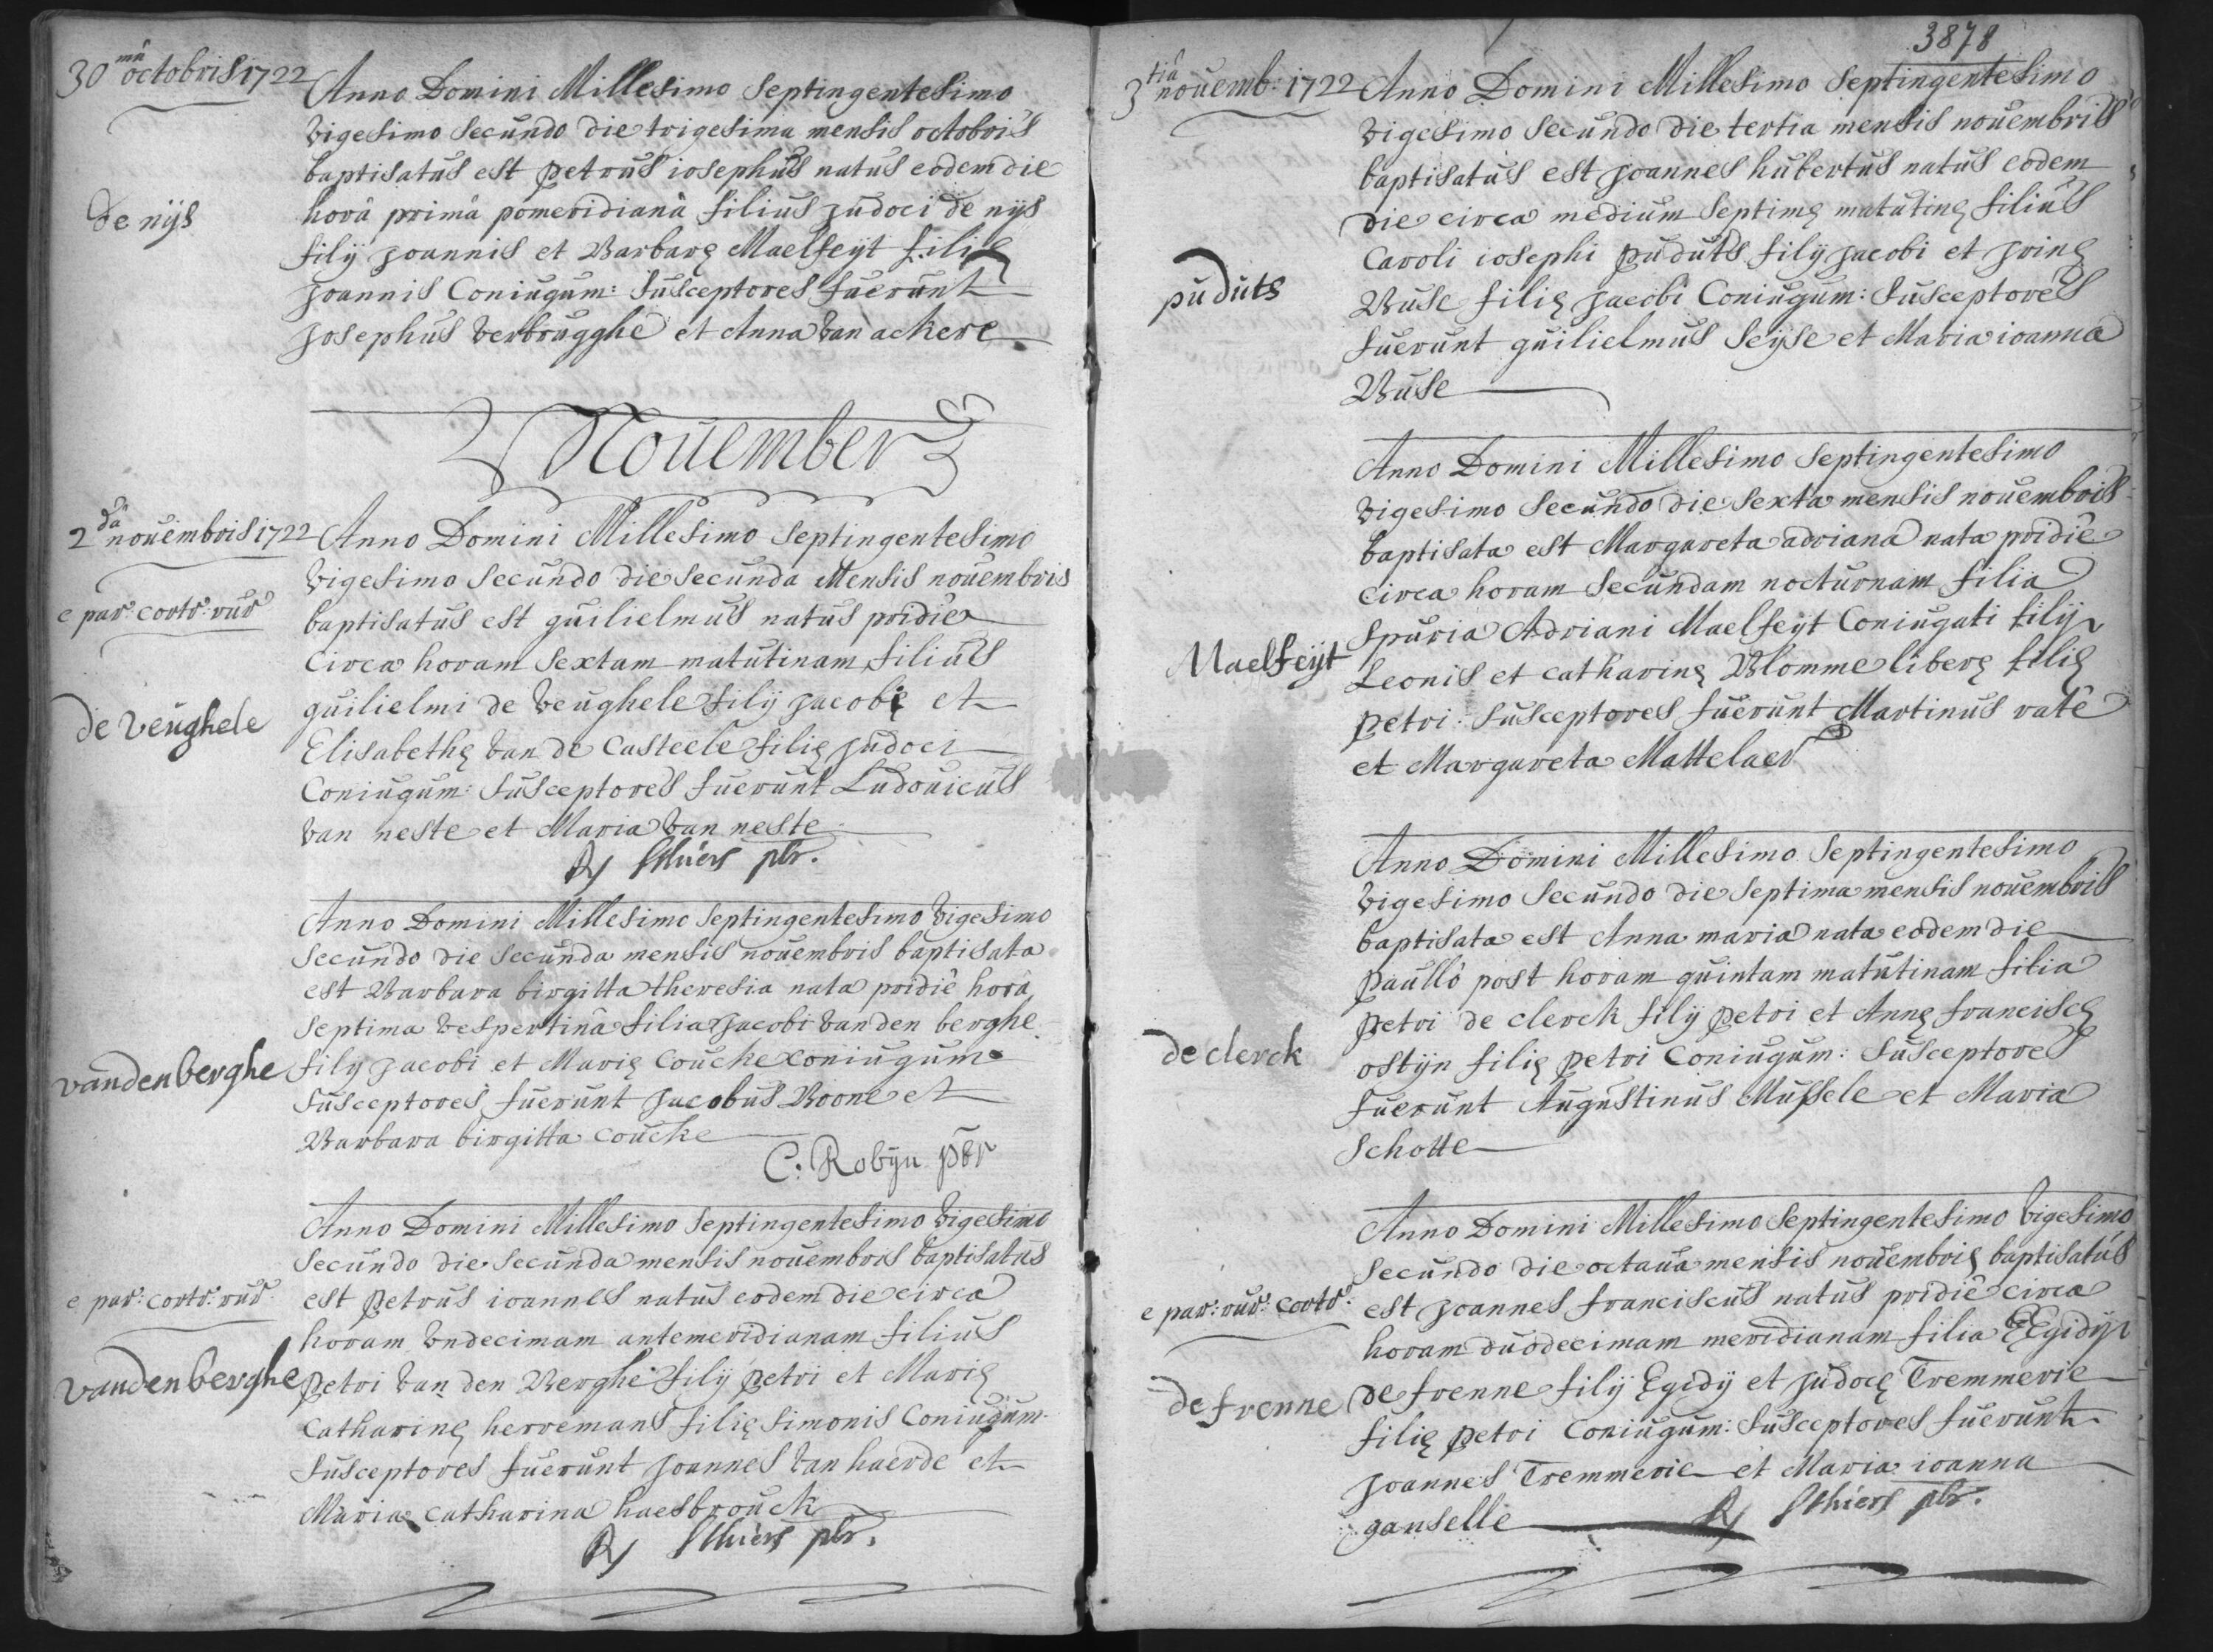 30mâ octobris 1722
Anno Domini Millesimo Septingentesimo
vigesimo secundo die trigesima mensis octobris
baptisatus est petrus iosephus natus eodem die
horâ primâ pomeridianâ filius judoci de nijs
filij joannis et Barbarę Maelfeijt filię
joannis Coniugum: susceptores fuerunt
josephus verbrugghe et Anna van ackere
De nijs
November
2dâ nouembris 1722
e par: cortr: rur
de veughele
Anno Domini Millesimo septingentesimo
vigesimo secundo die secunda Mensis nouembris
baptisatus est guilielmus natus pridie
circa horam sextam matutinam filius
guilielmi de veughele filij jacobi et
Elisabethę van de casteele filię judoci
Coniugum: susceptores fuerunt Ludouicus
van neste et Maria van neste
Sthiers pbr.
Anno Domini Millesimo septingentesimo vigesimo
secundo die secunda mensis nouembris baptisata
est Barbara birgitta theresia nata pridiè horâ
septima vespertinâ filia jacobi vanden berghe
filij jacobi et Marię Coucke coniugum
susceptores fuerunt jacobus Boone et
Barbara birgitta coucke
C. Robÿn pbr
vandenberghe
Anno Domini Millesimo septingentesimo vigesimo
secundo die secunda mensis nouembris baptisatus
est petrus ioannes natus eodem die circa
horam vndecimam antemeridianam filius
petri van den Berghe filij petri et Marię
catharinę herremans filię simonis Coniugum
susceptores fuerunt joannes van haerde et
Maria catharina haesbrouck
Sthiers pbr.
e par: cortr: rur
vandenberghe
3878
3tiâ nouemb: 1722
Anno Domini Millesimo septingentesimo
vigesimo secundo die tertia mensis nouembris
baptisatus est joannes hubertus natus eodem
die circa medium septimę matutinę filius
Caroli iosephi puduts filij jacobi et joinę
Buse filię jacobi Coniugum: susceptores
fuerunt guilielmus seijse et Maria ioanna
Buse
puduts
Anno Domini Millesimo septingentesimo
vigesimo secundo die sexta mensis nouembris
baptisata est Margareta adriana nata pridie
circa horam secundam nocturnam filia
spuria Adriani Maelfeijt Coniugati filij
Leonis et catharinę Blomme liberę filię
petri: susceptores fuerunt Martinus ratê
et Margareta Mattelaer
Maelfeijt
Anno Domini Millesimo septingentesimo
vigesimo secundo die septima mensis nouembris
baptisata est Anna maria nata eodem die
paullò post horam quintam matutinam filia
petri de clerck filij petri et Annę franciscę
ostijn filię petri Coniugum: susceptores
fuerunt Augustinus Mussele et Maria
schotte
de clerck
Anno Domini Millesimo septingentesimo vigesimo
secundo die octaua mensis nouembris baptisatus
est joannes franciscus natus pridiè circa
horam duodecimam meridianam filia Egidij
de frenne filij Egidij et judocę Tremmerie
filię petri Coniugum: susceptores fuerunt
joannes Tremmerie et Maria ioanna
ganselle
Sthiers pbr.
e par: rur: cortr:
de frenne